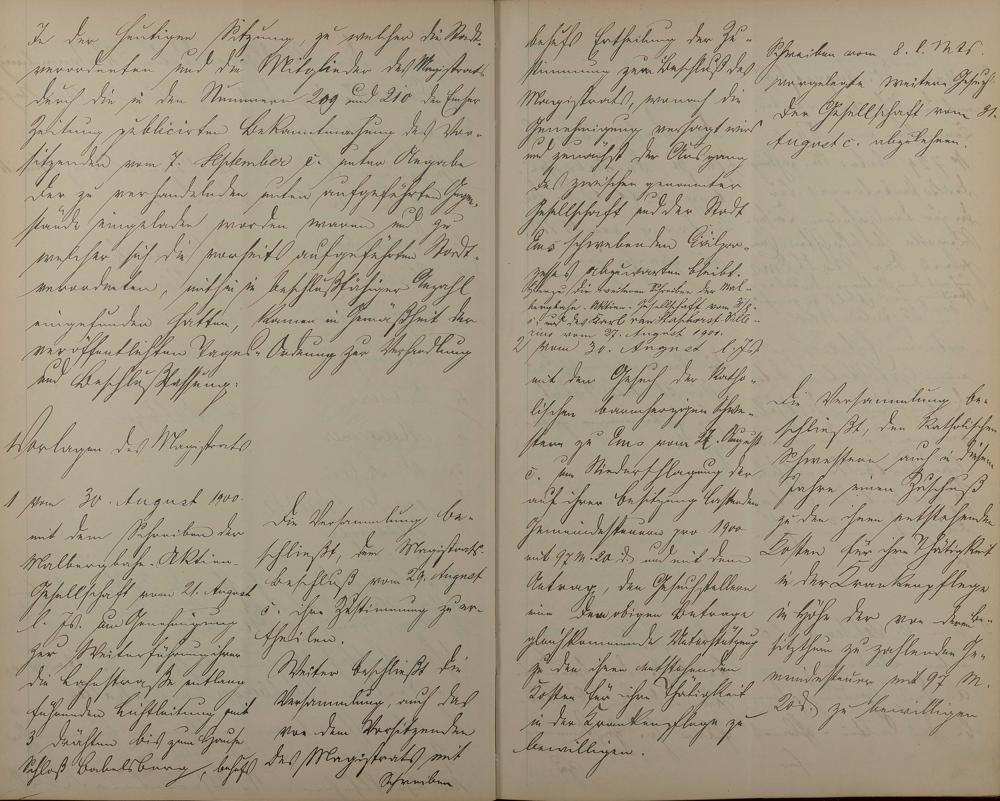 In der heutigen Sitzung, zu welcher die Stadt-
verordneten und die Mitglieder des Magistrats
durch die in den Nummern 209 und 210 der Emser
Zeitung publicirten Bekanntmachung des Vor-
sitzenden vom 7. September c. unter Angabe
der zu verhandelnden unten aufgeführten Gegen-
stände eingeladen worden waren und zu
welcher sich die vorseits aufgeführten Stadt-
verordneten, mithin in beschlußfähiger Anzahl
eingefunden hatten, kamen in Gemäßheit der
veröffentlichten Tages-Ordnung zur Verhandlung
und Beschlußfassung:
Vorlagen des Magistrats
1 vom 30. August 1900.
mit dem Schreiben der
Malbergbahn-Aktien-
Gesellschaft vom 21. August
l. Js. um Genehmigung
zur Weiterführung ihrer
die Lahnstraße entlang
führenden Lichtleitung mit
3 Drähten bis zum Hause
Schloß Babelsburg, behufs
Die Versammlung be-
schließt, dem Magistrats-
beschluß vom 29. August
c. ihre Zustimmung zu er-
theilen.
Weiter beschließt die
Versammlung, auch das
von dem Vorsitzenden
des Magistrats, mit
Schreiben
behufs Ertheilung der Zu-
stimmung zum Beschluß des
Magistrats, wonach die
Genehmigung versagt wird
und zunächst der Ausgang
des zwischen genannter
Gesellschaft und der Stadt
Ems schwebenden Civilpro-
zesses abzuwarten bleibt.
Hierzu die weiteren Schreiben der Mal-
bergbahn-Aktien-Gesellschaft vom
c. und des Karl van Hasthorst
vom 27. August 1900.
2 vom 30. August l. Js.
mit dem Gesuch der Katho-
lischen barmherzigen Schwe-
stern zu Ems vom 27. August
c. um Niederschlagung der
auf ihrer Besitzung lastenden
Gemeindesteuern pro 1900
mit 97 M. 20 d. und mit dem
Antrag, den Gesuchstellern
eine dem obigen Betrage
gleichkommende Unterstützung
zu den ihnen entstehenden
Kosten für ihre Thätigkeit
in der Krankenpflege zu
bewilligen.
Schreiben vom 8. l. Mts.
vorgelegte weitere Gesuch
der Gesellschaft vom 31.
August c. abzulehnen.
Die Versammlung be-
schließt, den Katholischen
Schwestern auch in diesem
Jahre einen Zuschuß
zu den ihnen entstehenden
Kosten für ihre Thätigkeit
in der Krankenpflege
in Höhe der von deren Be-
sitzthum zu zahlenden Ge-
meindesteuer mit 97 M.
20 d. zu bewilligen